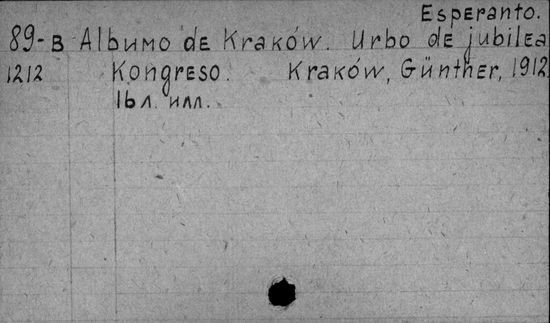 Esperanto.
89-B Albumo de Kraków. Urbo de jubilea
1212 Kongreso. Kraków, Günther, 1912
16л. илл.